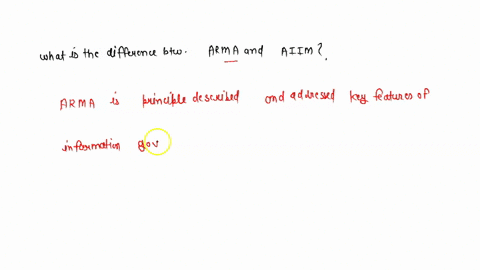 what is the difference btw. ARMA and AIIM?.
ARMA is principle described and addressed key features of
information gov